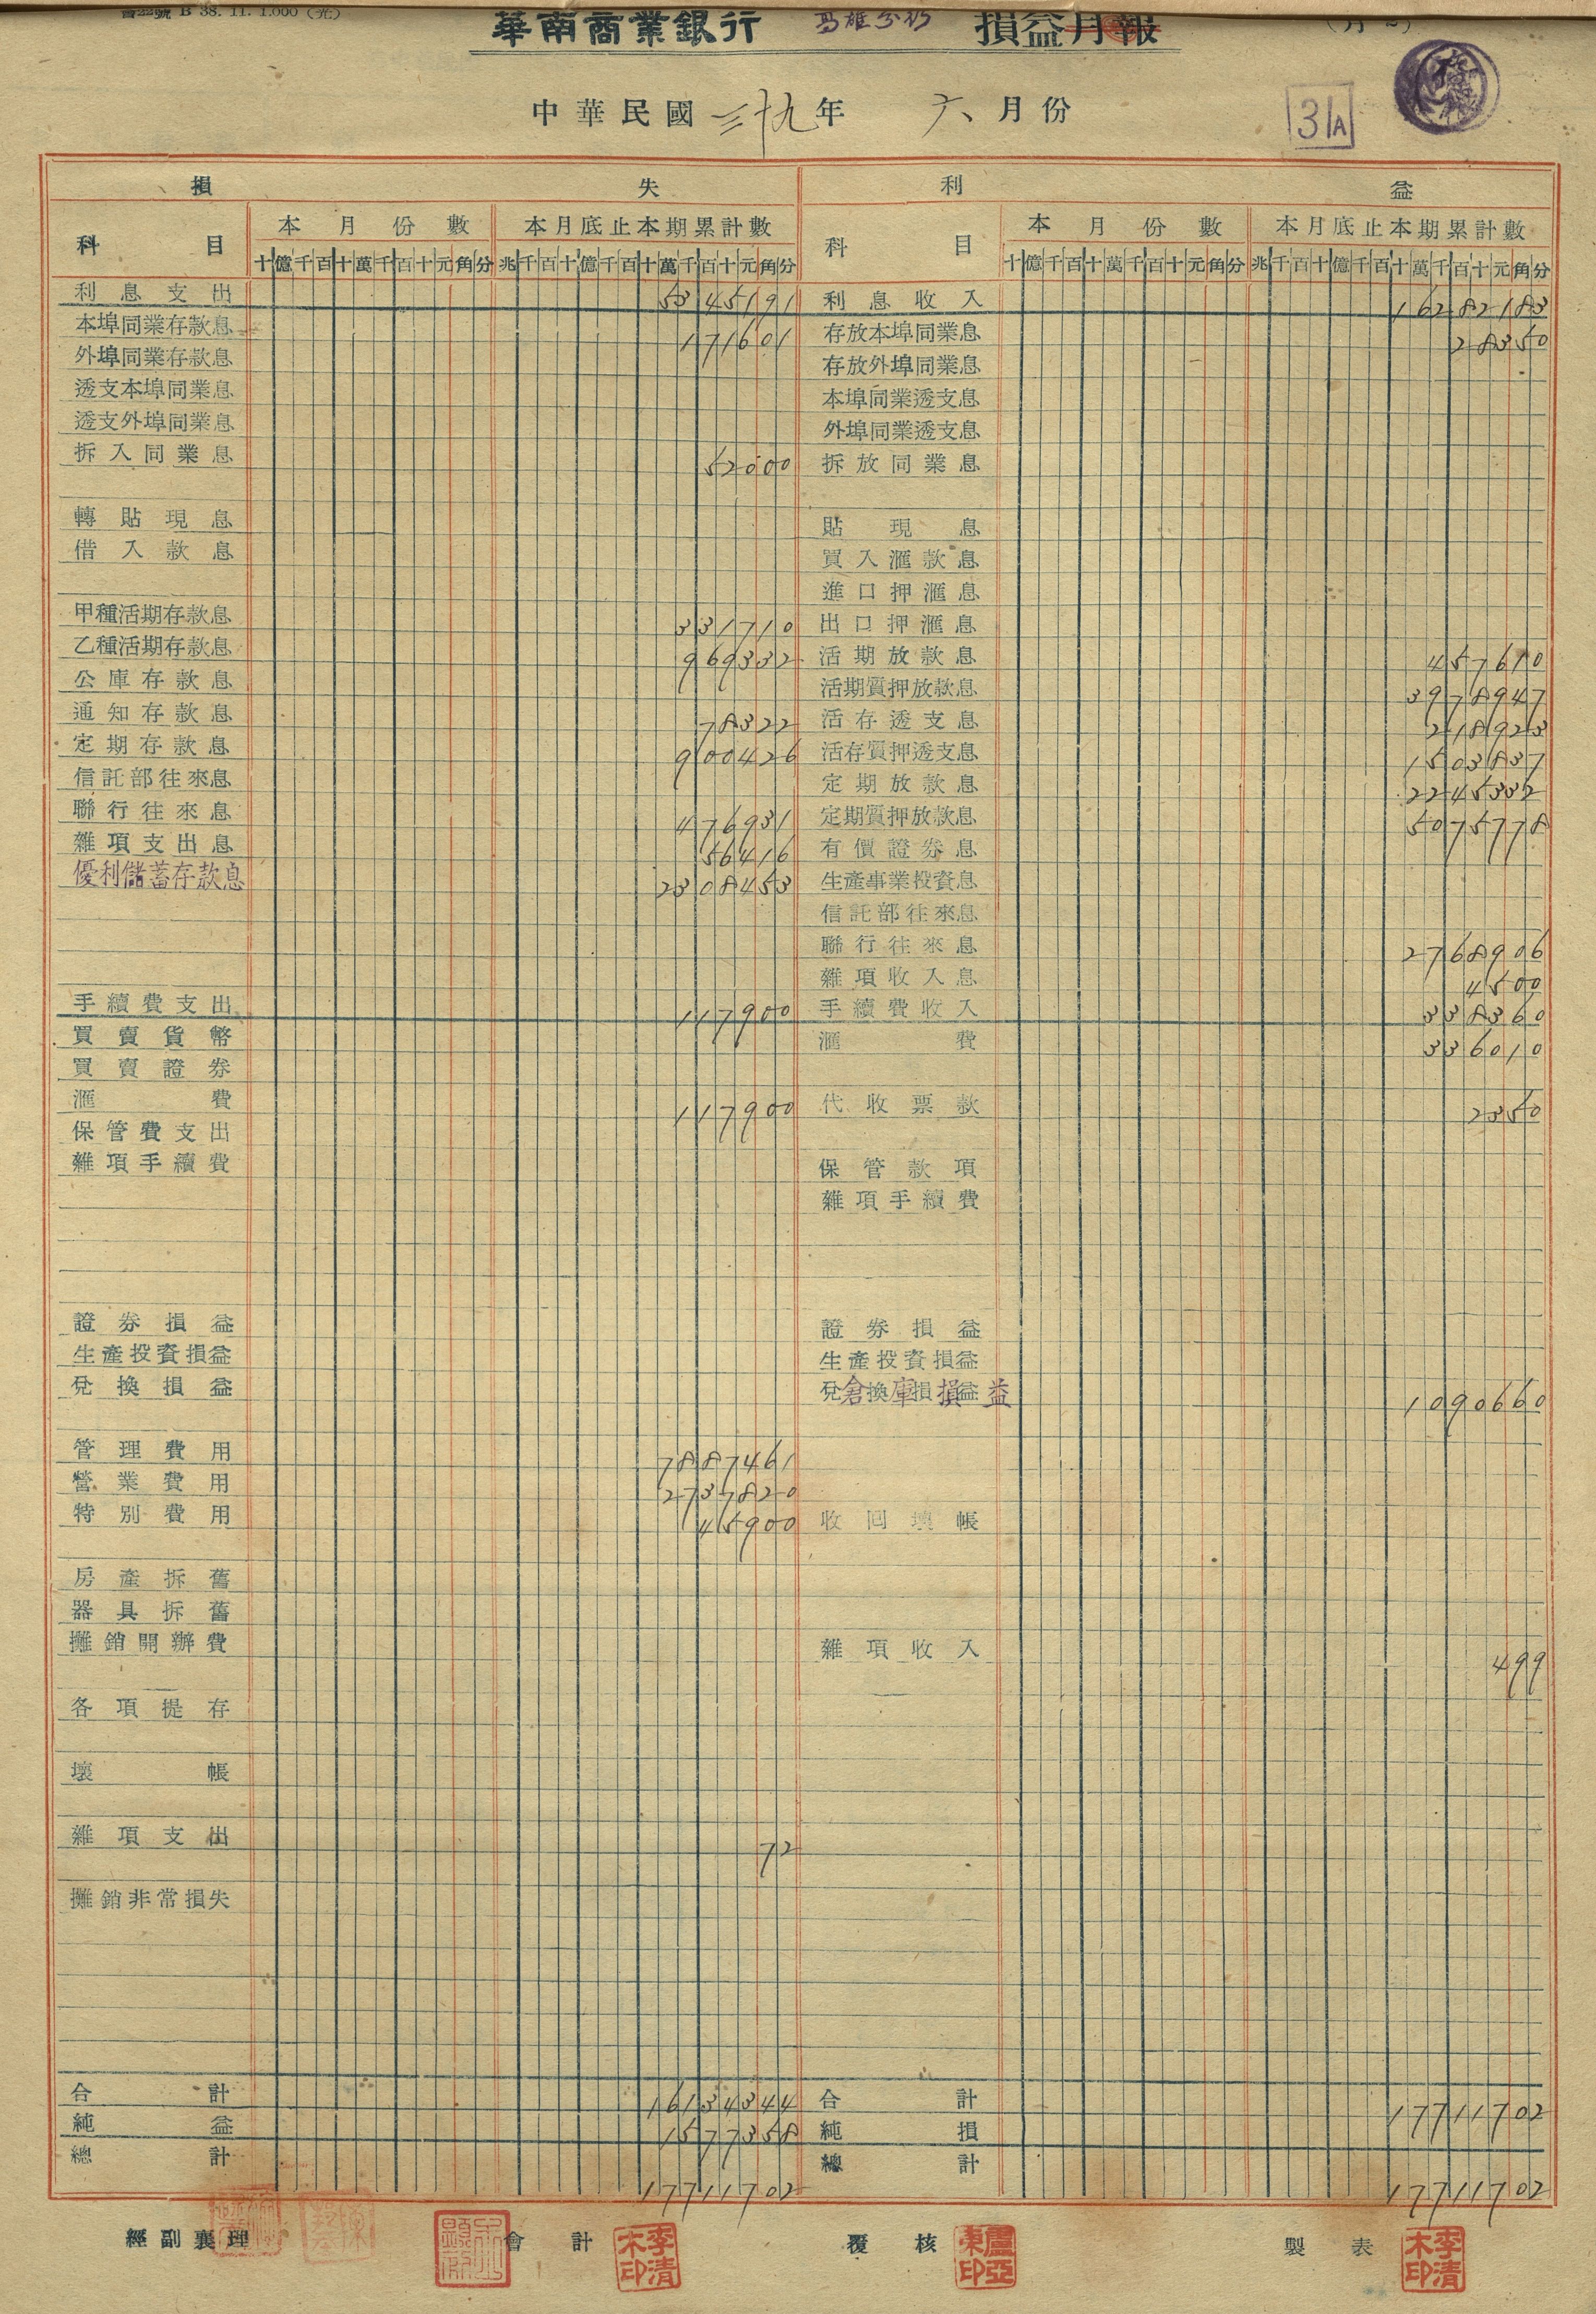 華南商業銀行 高雄分行 損益月報
中華民國三十九年 六月份
31A
損 失 利 益
科目 本月份數 本月底止本期累計數 科目 本月份數 本月底止本期累計數
十億千百十萬千百十元角分 兆千百十億千百十萬千百十元角分 十億千百十萬千百十元角分 兆千百十億千百十萬千百十元角分
利息支出 5345191 利息收入 16282183
本埠同業存款息 171601 存放本埠同業息 28350
外埠同業存款息 存放外埠同業息
透支本埠同業息 本埠同業透支息
透支外埠同業息 外埠同業透支息
拆入同業息 52000 拆放同業息
轉貼現息 貼現息
借入款息 買入滙款息
進口押滙息
甲種活期存款息 331710 出口押滙息
乙種活期存款息 969332 活期放款息 457610
公庫存款息 活期質押放款息 3978947
通知存款息 78322 活存透支息 218923
定期存款息 900426 活存質押透支息 1503837
信託部往來息 定期放款息 2245332
聯行往來息 476931 定期質押放款息 5075778
雜項支出息 56416 有價證券息
優利儲蓄存款息 2308453 生產事業投資息
信託部往來息
聯行往來息 2768906
雜項收入息 4500
手續費支出 117900 手續費收入 338360
買賣貨幣 滙費 336010
買賣證券
滙費 117900 代收票款 2350
保管費支出
雜項手續費 保管款項
雜項手續費
證券損益 證券損益
生產投資損益 生產投資損益
兌換損益 兌換損益 倉庫損益 1090660
管理費用 7887461
營業費用 2737820
特別費用 45900 收回壞帳
房產拆舊
器具拆舊
攤銷開辦費 雜項收入 499
各項提存
壞帳
雜項支出 72
攤銷非常損失
合計 16134344 合計 17711702
純益 1577358 純損
總計 17711702 總計 17711702
經副襄理 會計 李清木印 覆核 盧亞東印 製表 李清木印